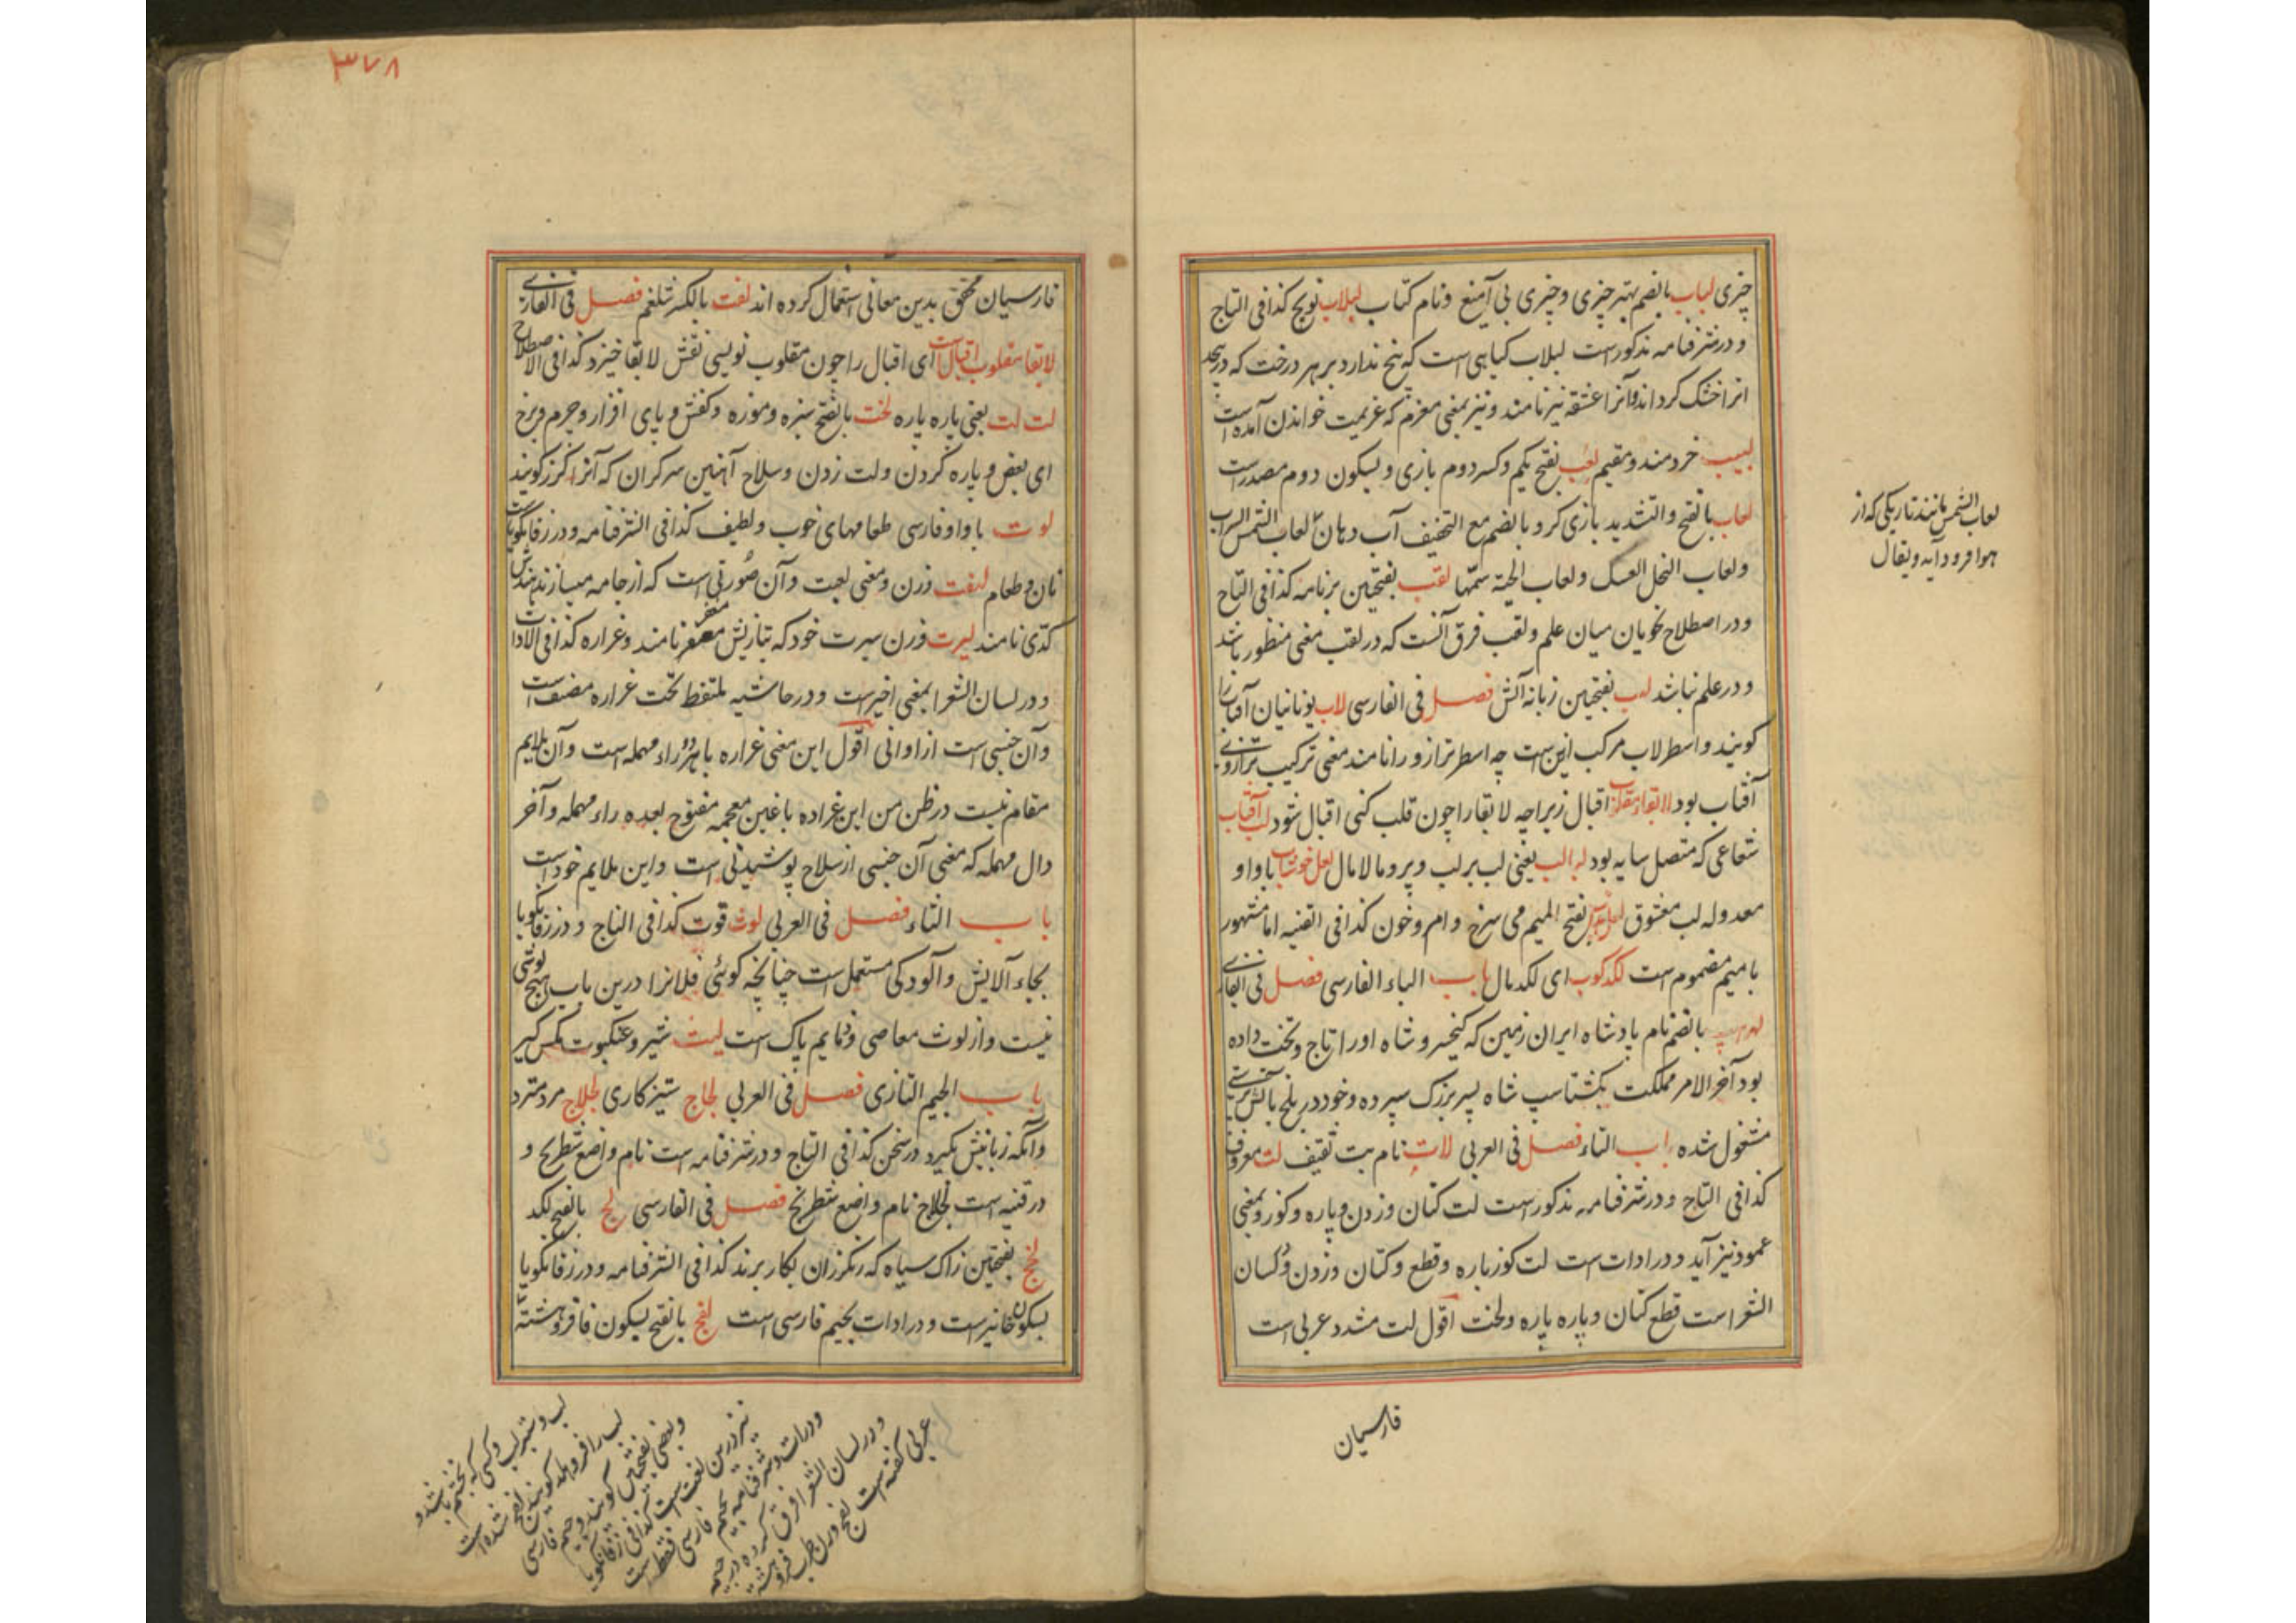 چیزی لباب بالضم بهتر چیزی و چیزی بی آمیغ و نام کتاب لبلاب نویج کذا فی التاج
و در شرفنامه مذکور است لبلاب گیاهی است که بیخ ندارد بر هر درخت که درپیچد
انرا خشک گرداند و آنرا عشقه نیز نامند و نیز بمعنی معزم که عزیمت خواندن آمده است
لبیب خردمند و مقیم لعب بفتح یکم و کسر دوم بازی و بسکون دوم مصدر است
لعاب بالفتح والتشدید بازی کر و بالضم مع التخفیف آب دهان لعاب الشمس السراب
ولعاب النحل العسل ولعاب الحیة سمّها لقب بفتحتین برنامه کذا فی التاج
و در اصطلاح نحویان میان علم و لقب فرق آنست که در لقب معنی منظور باشد
و در علم نباشد لهب بفتحتین زبانه آتش فصل فی الفارسی لاب یونانیان آفتاب را
گویند و اسطرلاب مرکب ازین است چه اسطر ترازو را نامند معنی ترکیب ترازوی
آفتاب بود لابقا مقلوب اقبال زیراچه لابقا را چون قلب کنی اقبال شود لب آفتاب
شعاعی که متصل سایه بود لبالب یعنی لب بر لب و پر و مالامال لعل خوشاب با واو
معدوله لب معشوق بفتح المیم می سرخ و ام و خون کذا فی القنیه اما مشهور
با میم مضموم است لگدکوب ای لگدمال باب الباء الفارسی فصل فی الفارسی
لهراسپ بالضم نام پادشاه ایران زمین که کیخسرو شاه اورا تاج و تخت داده
بود آخر الامر مملکت بکشتاسپ شاه پسر بزرگ سپرده و خود در بلخ بآتش پرستی
مشغول شده باب التاء فصل فی العربی لات نام بت ثقیف لت معروف
کذا فی التاج و در شرفنامه مذکور است لت کتان و زدن و پاره و کوز و بمعنی
عمود نیز آید و در ادات است لت کوز پاره و قطع و کتان و زدن و لسان
الشعراست قطع کتان و پاره پاره و لخت اقول لت مشدد عربی است
فارسیان
لعاب الشمس مانند تاریکی که از
هوا فرود آید و یقال
۳۷۸
فارسیان مخفف بدین معانی استعمال کرده اند لفت بالکسر شلغم فصل فی الفارسی
لابقا مقلوب اقبال است ای اقبال را چون مقلوب نویسی نقش لابقا خیزد کذا فی الاصطلاح
لت لت یعنی پاره پاره لخت بالفتح سبزه و موزه و کفش و پای افزار و جرم و برخ
ای بعض و پاره کردن و لت زدن و سلاح آهنین سر گران که آنرا گرز گویند
لوت با واو فارسی طعامهای خوب و لطیف کذا فی الشرفنامه و در زفانگویاست
نان و طعام لیفت وزن و معنی لعبت و آن صورتی است که از جامه میسازند هندش
کدّی نامند لیرت وزن سیرت خود که بتازیش مغفر نامند و غراره کذا فی الادات
و در لسان الشعرا بمعنی اخیر است و در حاشیه ملتقط تحت غراره مضیف است
و آن جنسی است از اوانی اقول این معنی غراره با هر دو راء مهمله است و آن ملایم
مقام نیست در ظن من این غراده با غین معجمه مفتوح بعده راء مهمله و آخر
دال مهمله که معنی آن جنسی از سلاح پوشیدنی است و این ملایم خود است
باب الثاء فصل فی العربی لوث قوت کذا فی التاج و در زفانگویا
بجاء آلایش و آلودگی مستعمل است چنانچه گوئی فلانرا درین باب هیچ لوثی
نیست و از لوث معاصی و ذمایم پاک است لیث شیر و عنکبوت مگس گیر
باب الجیم التازی فصل فی العربی لجاج ستیزکاری لجلاج مرد متردد
و آنکه زبانش بگیرد در سخن کذا فی التاج و در شرفنامه است نام واضع شطرنج و
در قنیه است لجلاج نام واضع شطرنج فصل فی الفارسی لج بالفتح لکد
لخج بفتحتین زاک سیاه که رنگرزان بکار برند کذا فی الشرفنامه و در زفانگویا
بسکون خا نیز است و در ادات بجیم فارسی است لفج بالفتح بسکون فا فروهشته
لب و ستبر لب و کسی که بخشم باشد و
لب را فروهلد گویند لفج شده است
و بعضی بفتحتین گویند و جیم فارسی
نیز درین لغت است کذا فی زفانگویا
و در ادات و شرفنامه بجیم فارسی فقط است
و در لسان الشعرا فرق کرده در جیم
عربی گفته است لفج وزن طرب فروهشته